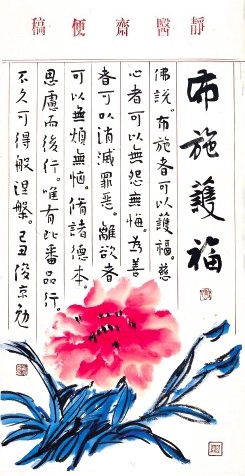 靜醫齋便稿
布施護福
佛說。布施者可以護福。慈
心者可以無怨無悔。為善
者可以消滅罪惡。離欲者
可以無煩無惱。脩諸德本
思慮而後行。唯有此番品行。
不久可得般涅槃。己丑俊京勉